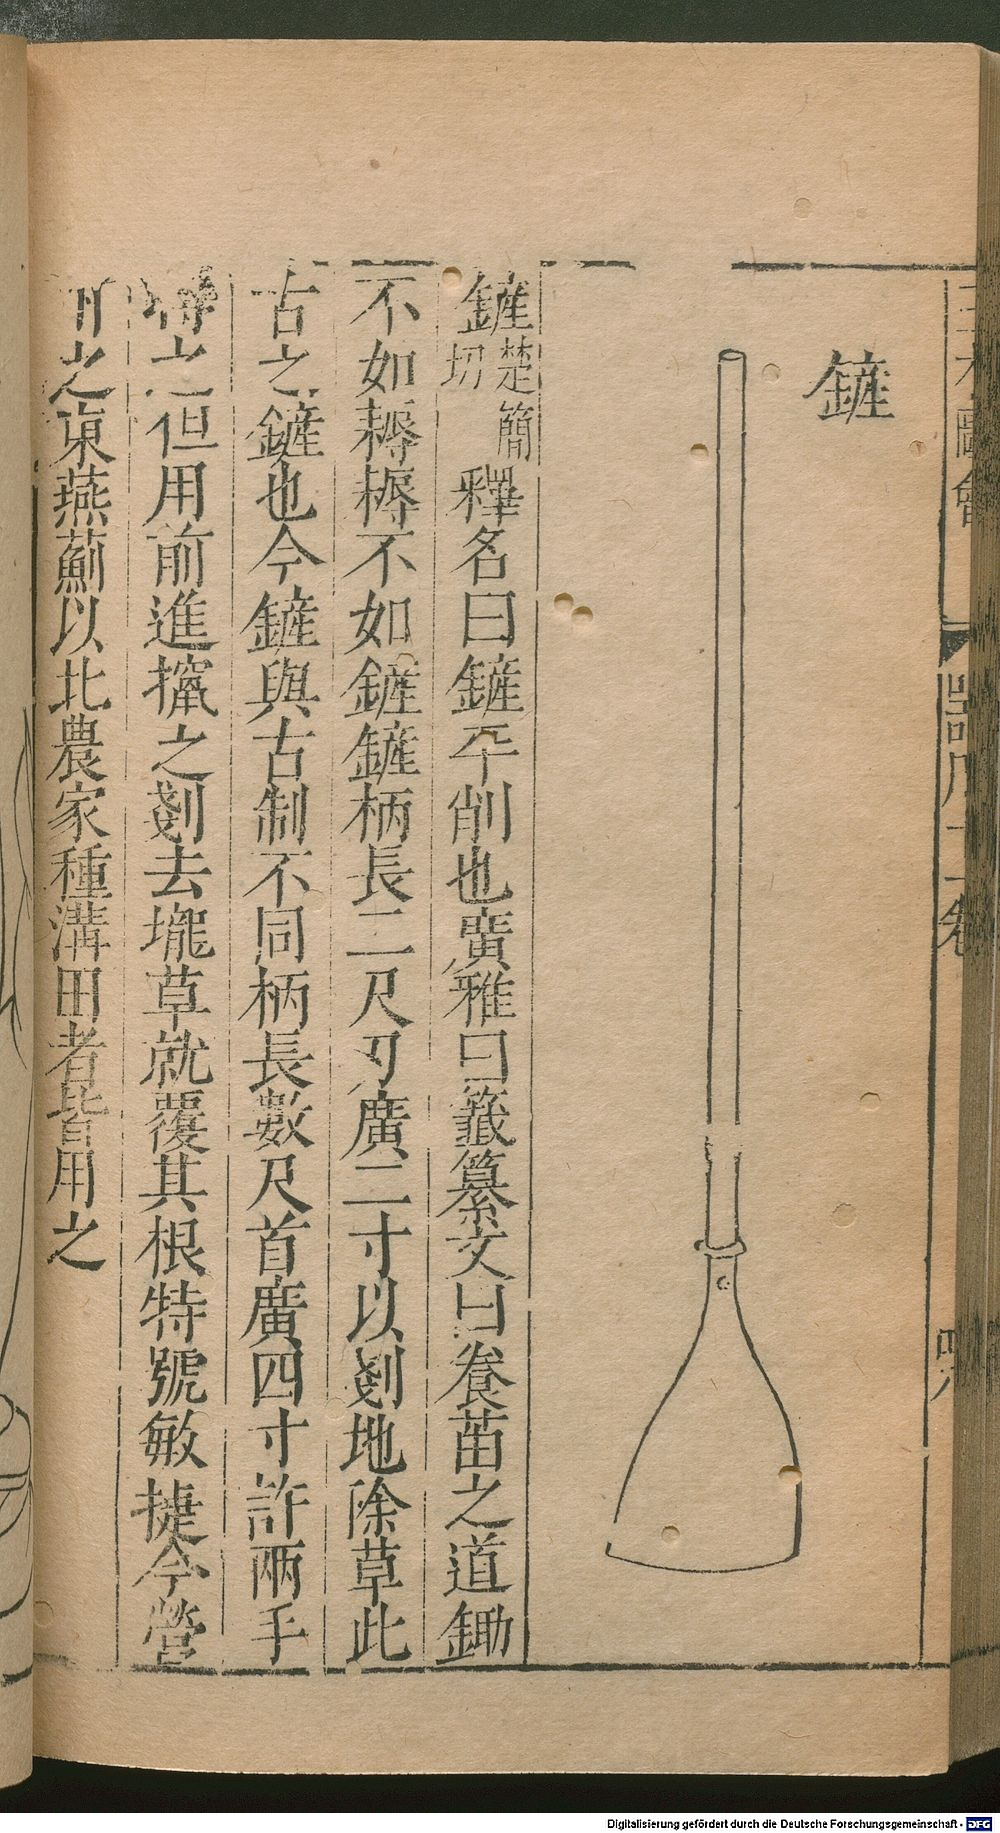 鏟
鏟楚簡切釋名曰鏟平削也廣雅曰籤纂文曰養苗之道鋤
不如耨耨不如鏟鏟柄長二尺刃廣二寸以剗地除草此
古之鏟也今鏟與古制不同柄長數尺首廣四寸許兩手
之但用前進攛之剗去壠草就覆其根特號敏捷今營
之東燕薊以北農家種溝田者皆用之
Digitalisierung gefördert durch die Deutsche Forschungsgemeinschaft - DFG